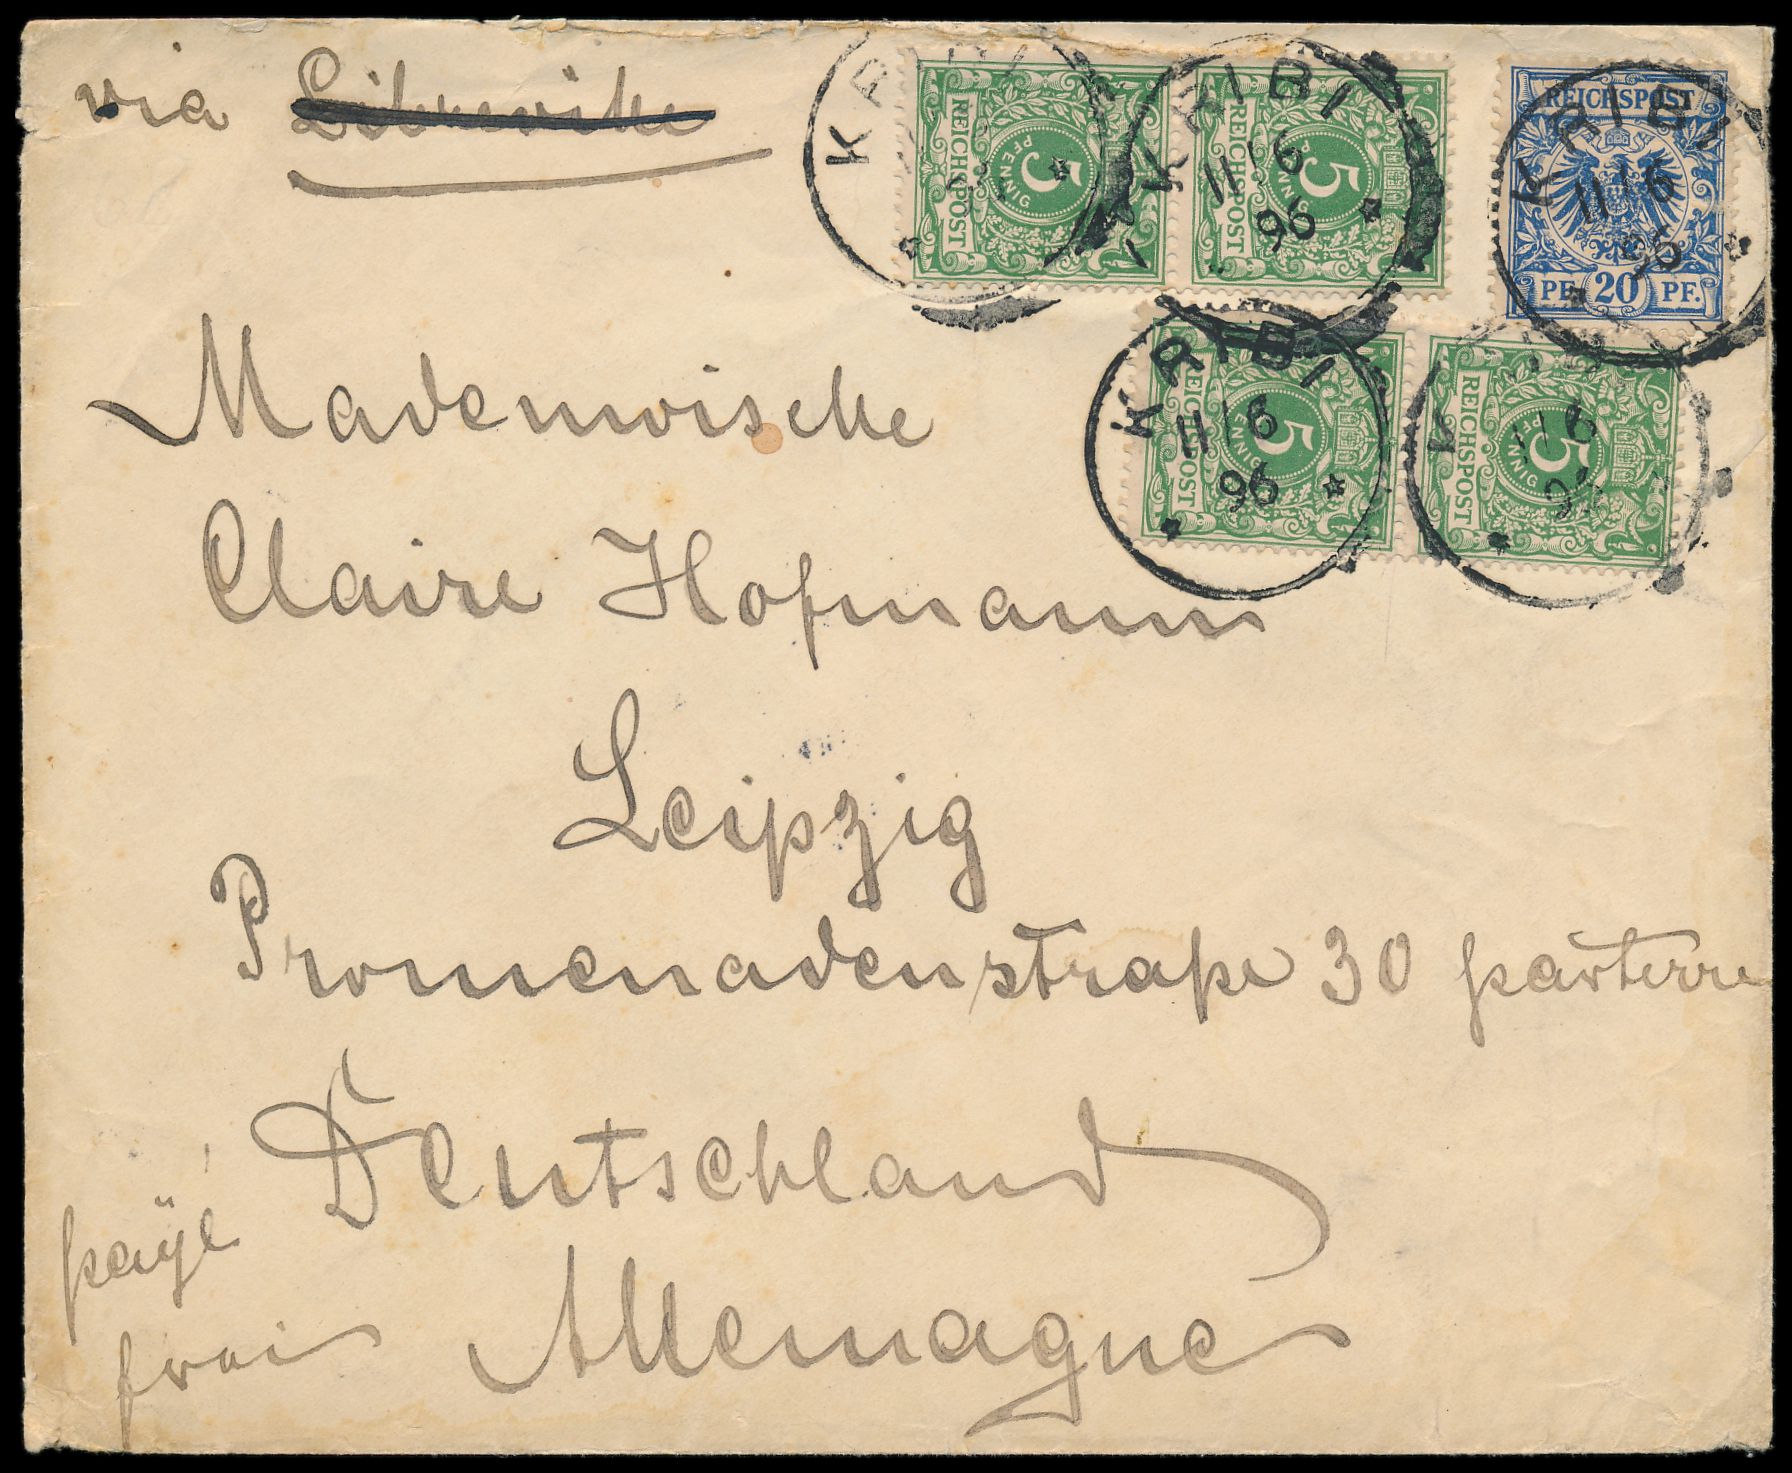 via Librevike
Mademoische
Claire Hofmann
Leipzig
Promenadenstraße 30 parterre
Deutschland
Allemagne
payé
frai
REICHSPOST
5
PFENNIG
REICHSPOST
5
PFENNIG
REICHSPOST
PF. 20 PF.
REICHSPOST
5
PFENNIG
REICHSPOST
5
PFENNIG
KRIBI
11/6
96
KRIBI
11/6
96
KRIBI
11/6
96
K
11/6
96